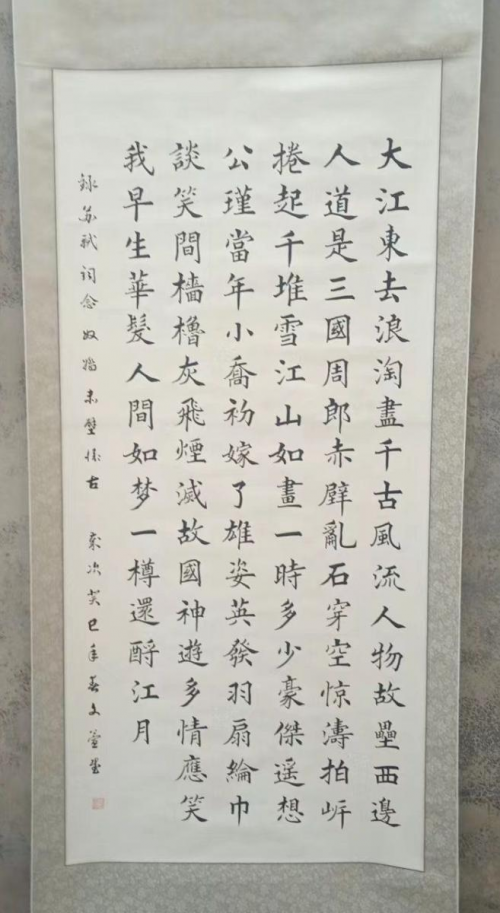 大江東去浪淘盡千古風流人物故壘西邊
人道是三國周郎赤壁亂石穿空惊濤拍岍
捲起千堆雪江山如畫一時多少豪傑遥想
公瑾當年小喬初嫁了雄姿英發羽扇綸巾
談笑間檣櫓灰飛煙滅故國神遊多情應笑
我早生華髮人間如梦一樽還酹江月
録苏軾词念奴娇赤壁怀古 歲次癸巳年春文萱书